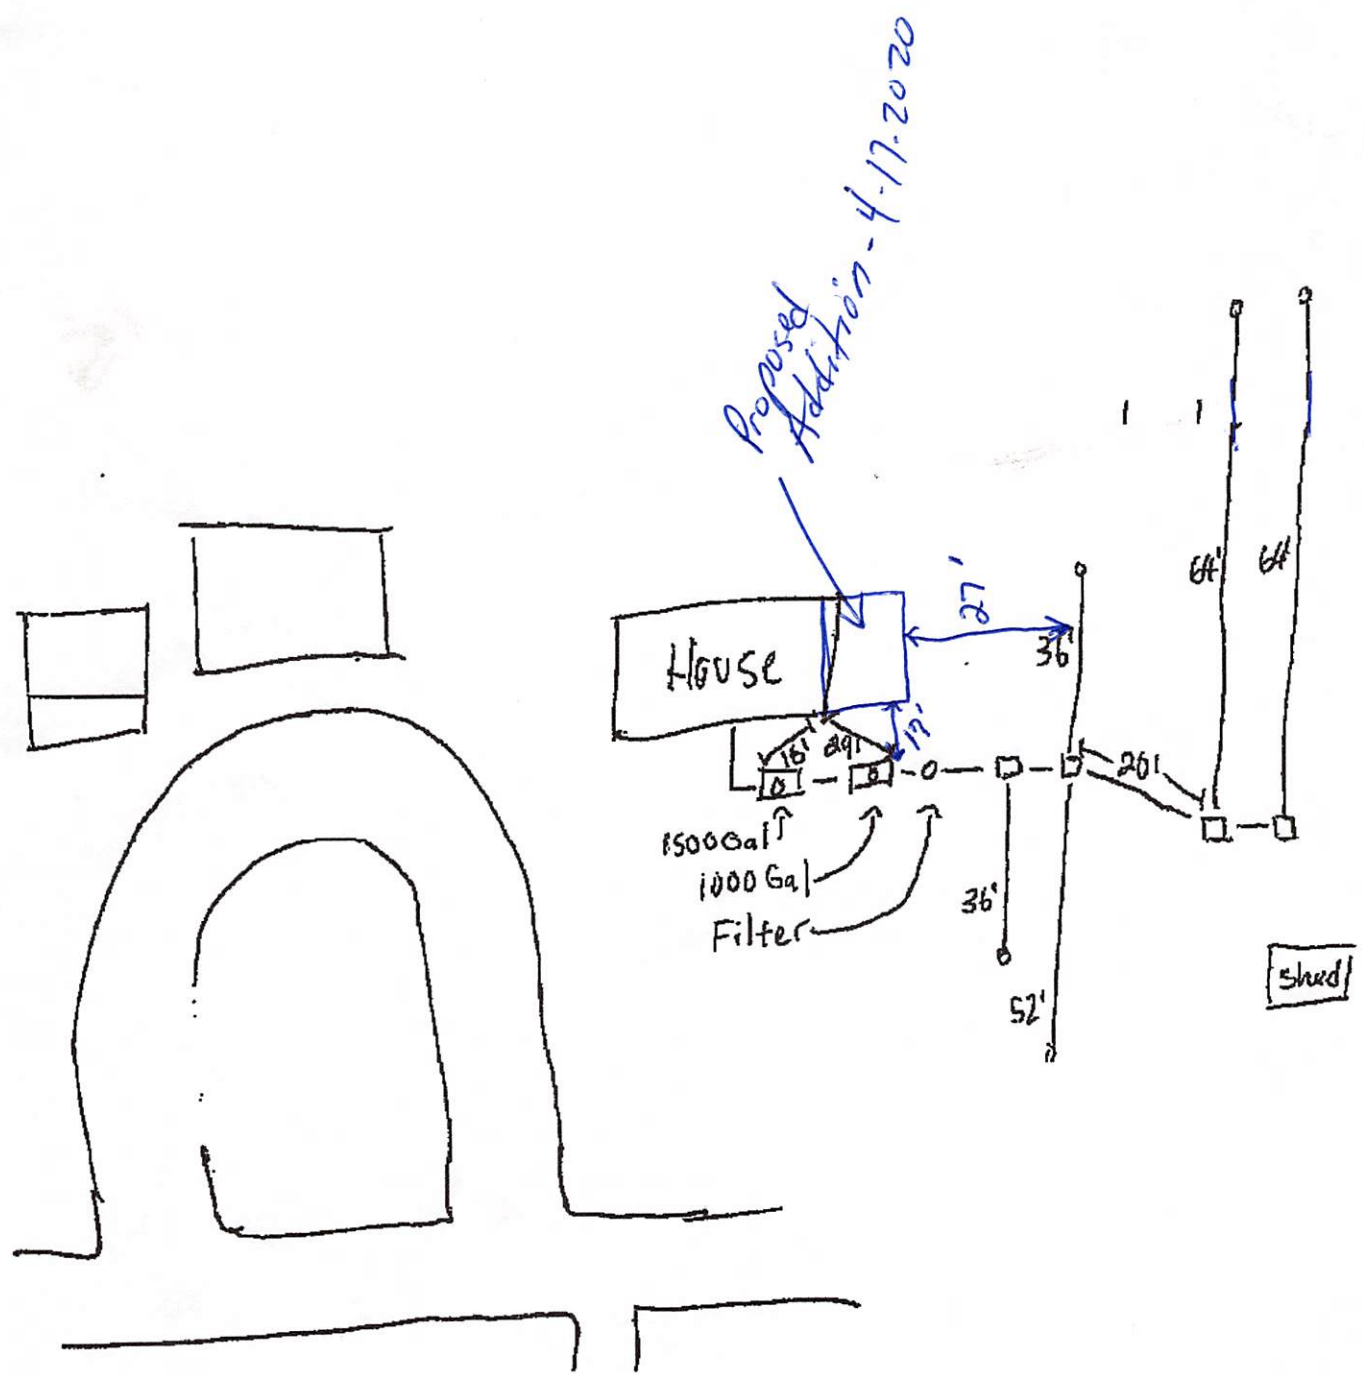 Proposed
Addition - 4-17-2020
64'
64'
27'
36'
House
15'
20'
1500 Gal
1000 Gal
Filter
36'
52'
Shed